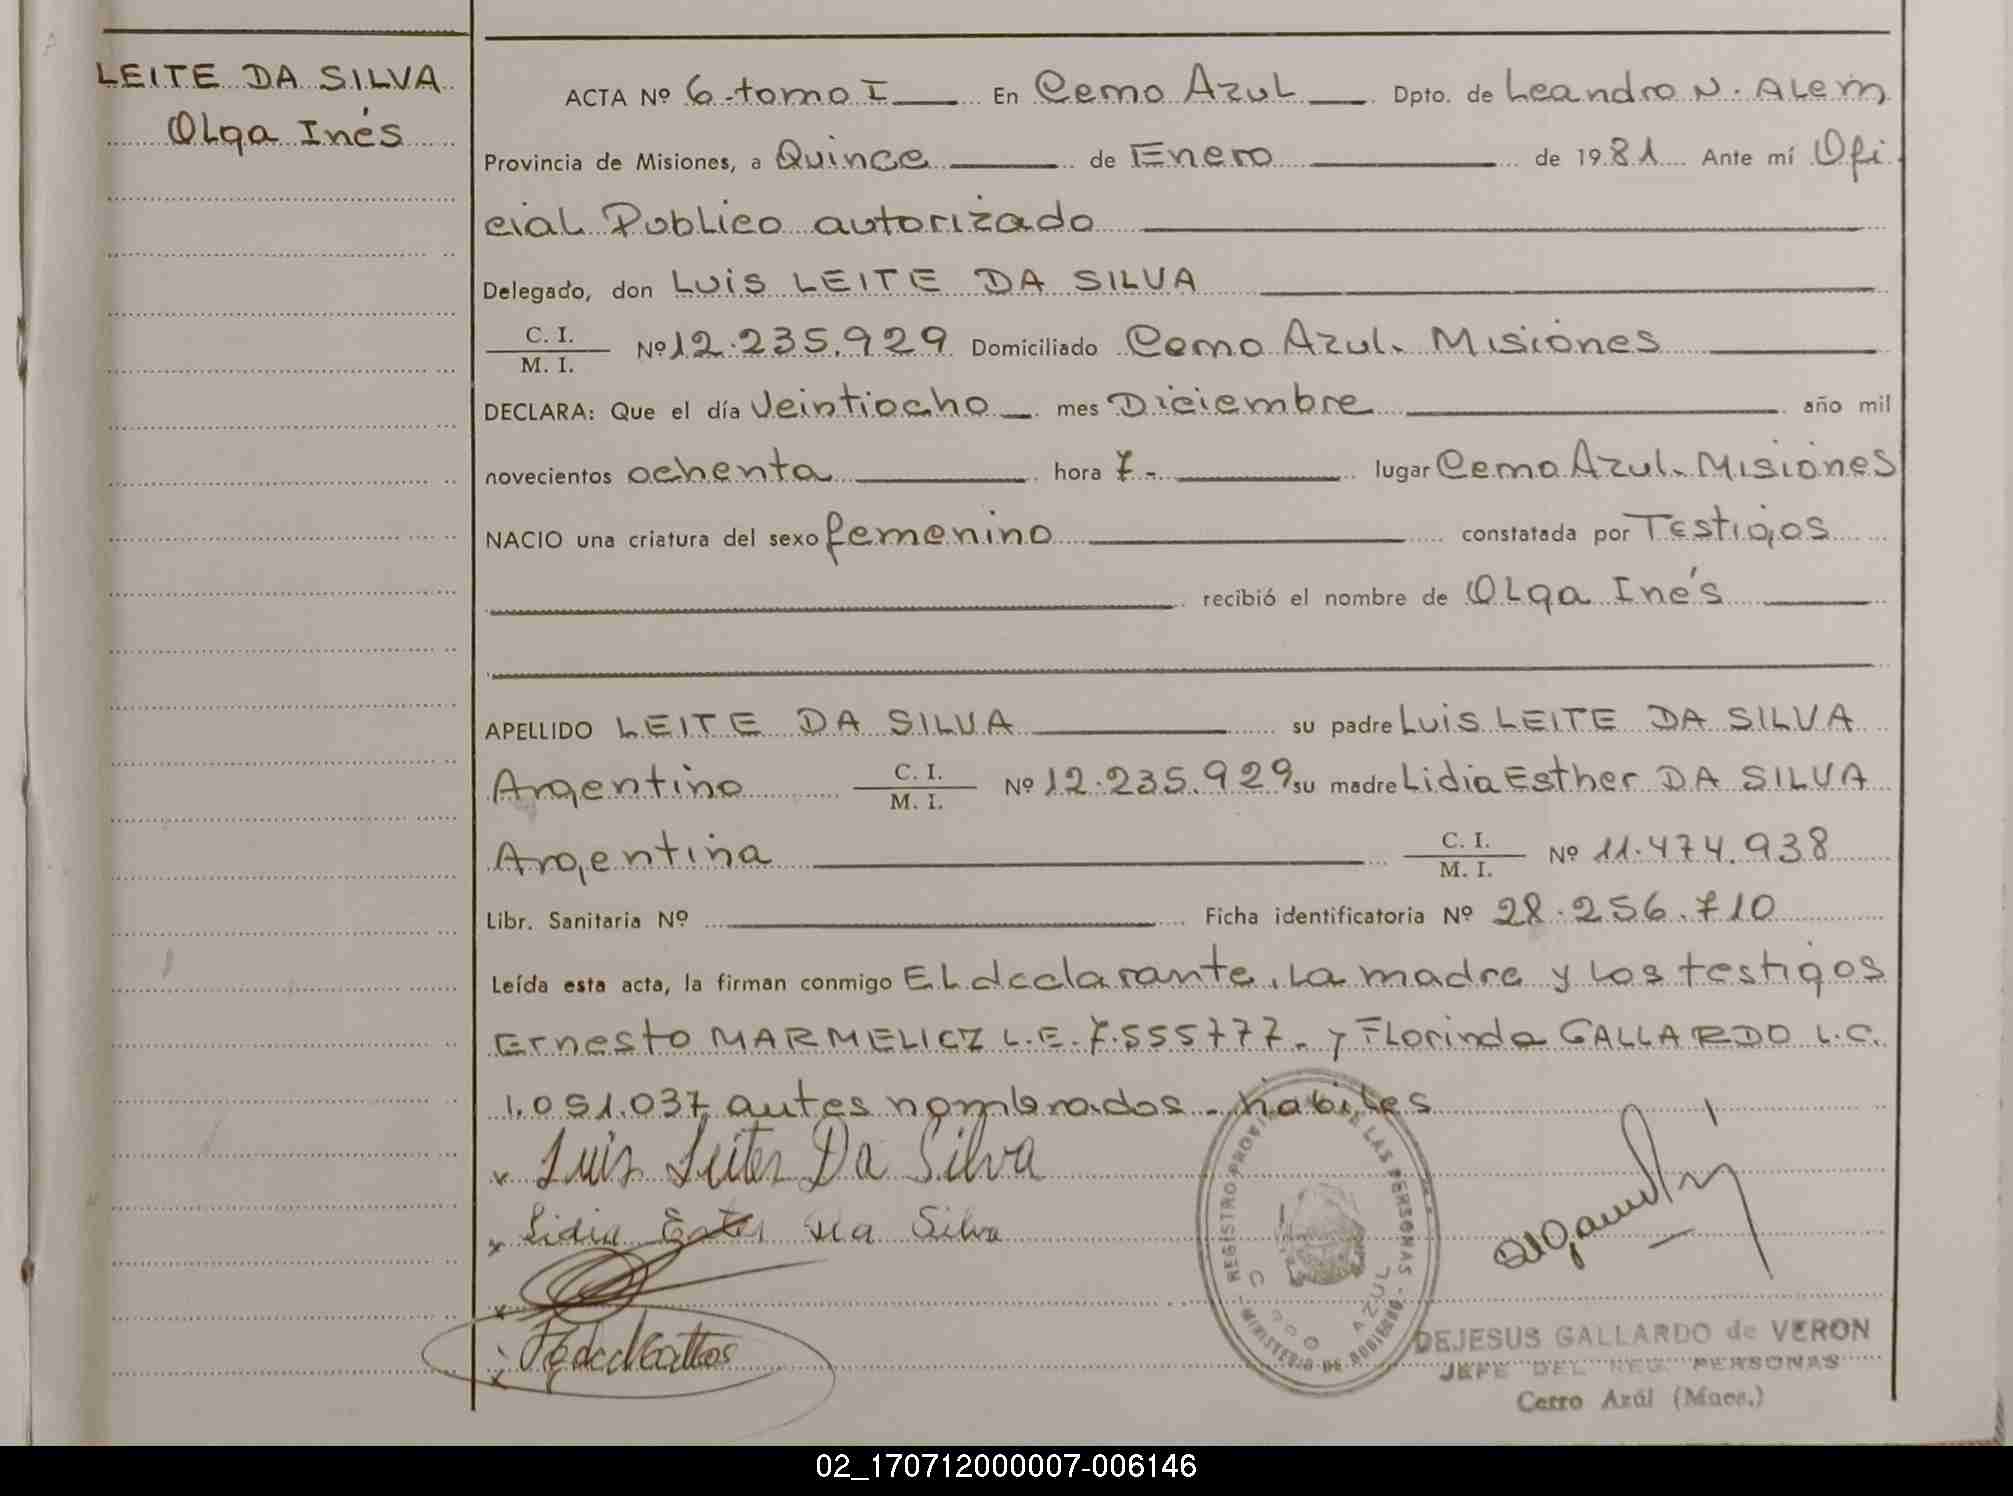 LEITE DA SILVA
Olga Inés
ACTA Nº 6-tomo I En Cerro Azul Dpto. de Leandro N. Alem
Provincia de Misiones, a Quince de Enero de 1981 Ante mí Ofi
cial Publico autorizado
Delegado, don Luis LEITE DA SILVA
C. I.
M. I.
Nº 12.235.929 Domiciliado Cerro Azul. Misiones
DECLARA: Que el día Veintiocho mes Diciembre año mil
novecientos ochenta hora 7- lugar Cerro Azul. Misiones
NACIO una criatura del sexo femenino constatada por Testigos
recibió el nombre de Olga Inés
APELLIDO LEITE DA SILVA su padre Luis LEITE DA SILVA
Argentino C. I. M. I. Nº 12.235.929 su madre Lidia Esther DA SILVA
Argentina C. I. M. I. Nº 11.474.938
Libr. Sanitaria Nº Ficha identificatoria Nº 28.256.710
Leída esta acta, la firman conmigo El declarante, La madre y Los testigos
Ernesto MARMELICZ L.E. 7.555777. y Florinda GALLARDO L.C.
1.051.037 antes nombrados - habiles
x Luis Leites Da Silva
x Lidia Ester da Silva
REGISTRO PROVINCIAL DE LAS PERSONAS
MINISTERIO DE GOBIERNO
CERRO AZUL
DEJESUS GALLARDO de VERON
JEFE DEL REG. PERSONAS
Cerro Azúl (Mnes.)
02_170712000007-006146